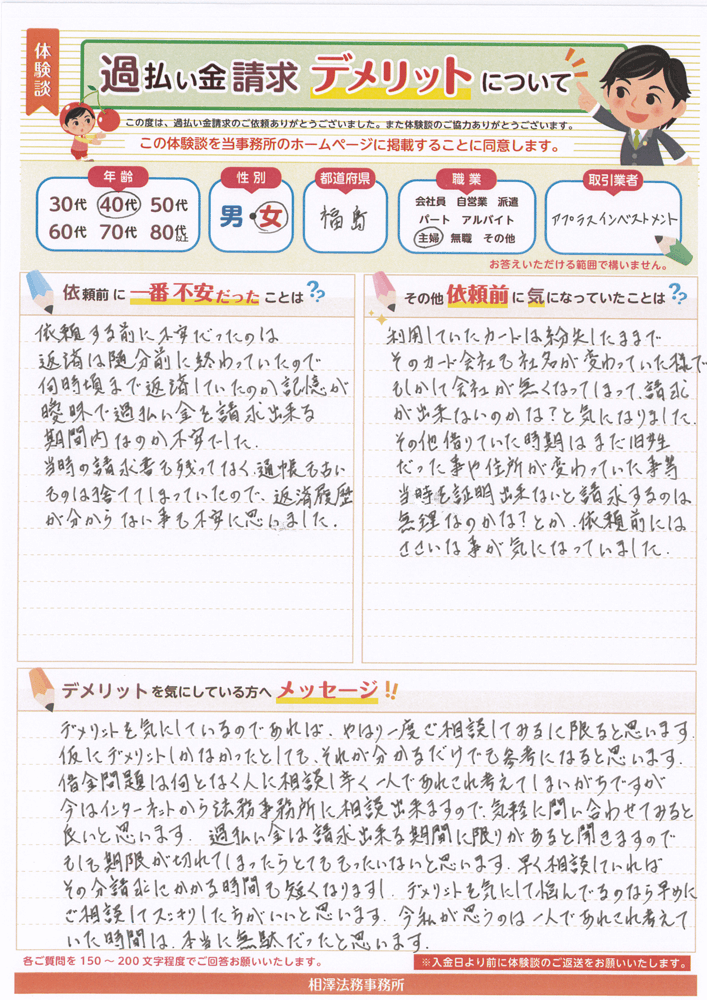 体験談
過払い金請求 デメリットについて
この度は、過払い金請求のご依頼ありがとうございました。また体験談のご協力ありがとうございます。
この体験談を当事務所のホームページに掲載することに同意します。
年齢
30代 40代 50代
60代 70代 80代以上
性別
男・女
都道府県
福島
職業
会社員 自営業 派遣
パート アルバイト
主婦 無職 その他
取引業者
アプラスインベストメント
お答えいただける範囲で構いません。
依頼前に一番不安だったことは??
依頼する前に不安だったのは
返済は随分前に終わっていたので
何時頃まで返済していたのか記憶が
曖昧で過払い金を請求出来る
期間内なのか不安でした.
当時の請求書も残ってなく、通帳も古い
ものは捨ててしまっていたので、返済履歴
が分からない事も不安に思いました.
その他依頼前に気になっていたことは??
利用していたカードは紛失したままで
そのカード会社も社名が変わっていた様で
もしかして会社が無くなってしまって、請求
が出来ないのかな?と気になりました.
その他借りていた時期はまだ旧姓
だった事や住所が変わっていた事等
当時を証明出来ないと請求するのは
無理なのかな?とか、依頼前には
ささいな事が気になっていました.
デメリットを気にしている方へメッセージ!!
デメリットを気にしているのであれば、やはり一度ご相談してみるに限ると思います.
仮にデメリットしかなかったとしても、それが分かるだけでも参考になると思います.
借金問題は何となく人に相談し辛く一人であれこれ考えてしまいがちですが
今はインターネットから法務事務所に相談出来ますので、気軽に問い合わせてみると
良いと思います. 過払い金は請求出来る期間に限りがあると聞きますので
もしも期限が切れてしまったらとてももったいないと思います. 早く相談していれば
その分請求にかかる時間も短くなりますし、デメリットを気にして悩んでるのなら早めに
ご相談してスッキリした方がいいと思います. 今私が思うのは一人であれこれ考えて
いた時間は、本当に無駄だったと思います.
各ご質問を150~200文字程度でご回答お願いいたします。
※入金日より前に体験談のご返送をお願いいたします。
相澤法務事務所